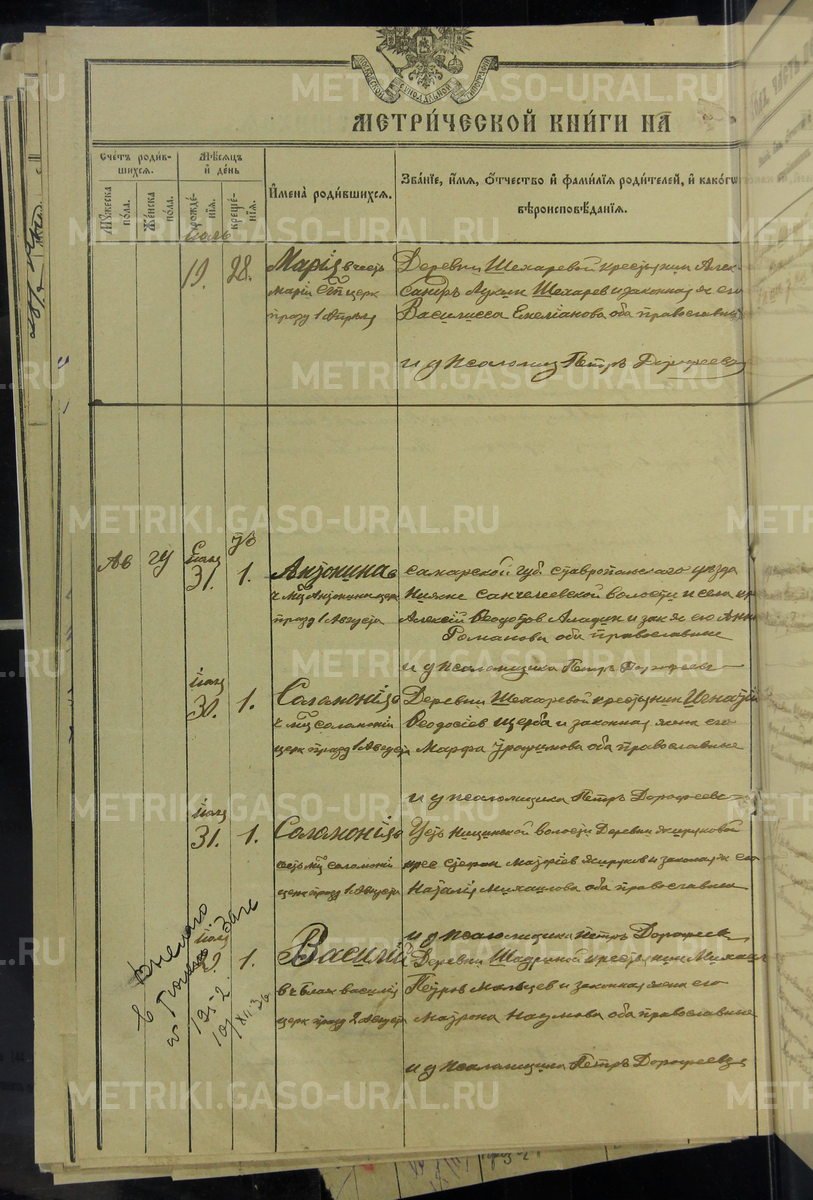 МЕТРИ́ЧЕСКОЙ КНИ́ГИ НА
Сче́тъ роди́в-
шихся.
Мѣ́сяцъ
и́ де́нь
Му́жеска
по́ла.
Же́нска
по́ла.
рожде́-
нія.
креще́-
нія.
И҆мена̀ роди́вшихся.
Зва́ніе, и҆́мя, ѻ҆́тчество и҆ фами́лія роди́телей, и҆ како́гѡ
вѣроисповѣ́данія.
іюль
19. 28.
Марія въ честь
Марiи Егип церк
празд 1 Апрѣля
Деревни Шехаревой крестьянин Алек-
сандръ Лукин Шехарев и законная ж его
Василисса Емелiанова оба православны
и д псаломщ Петръ Дорофеевъ
Ав гу с тъ
іюля
31. 1.
Антонина в
ч Мц Антонины церк
празд 1 Августа
Самарской губ. Ставропольскаго уезда
Нижне Санчелеевской волости и села кр
Алексiй Ѳеодотов Аладин и зак ж его Анна
Романова оба православные
и д псаломщика Петръ Дорофеевъ
іюля
30. 1.
Соломонiя в
ч Мц Соломонiи
церк празд 1 Августа
Деревни Шехаревой крестьянин Игнатiй
Ѳеодосiев Щерба и законная жена его
Марфа Трофимова оба православные
и д псаломщика Петръ Дорофеевъ
іюля
31. 1.
Соломонiя в
честь Мц Соломонiи
церк празд 1 Августа
Усть Ницинской волости Деревни Жируковой
крес Стефан Матѳiев Жируков и законая ж его
Наталiя Михаилова оба православны
и д псаломщика Петръ Дорофеевъ
іюля
29. 1.
Василiй
в ч Блаж Василiя
церк празд 2 Августа
Деревни Шадриной крестьянин Михаил
Петров Мальцев и законная жена его
Матрона Наумова оба православные
и д псаломщика Петръ Дорофеевъ
METRIKI.GASO-URAL.RU